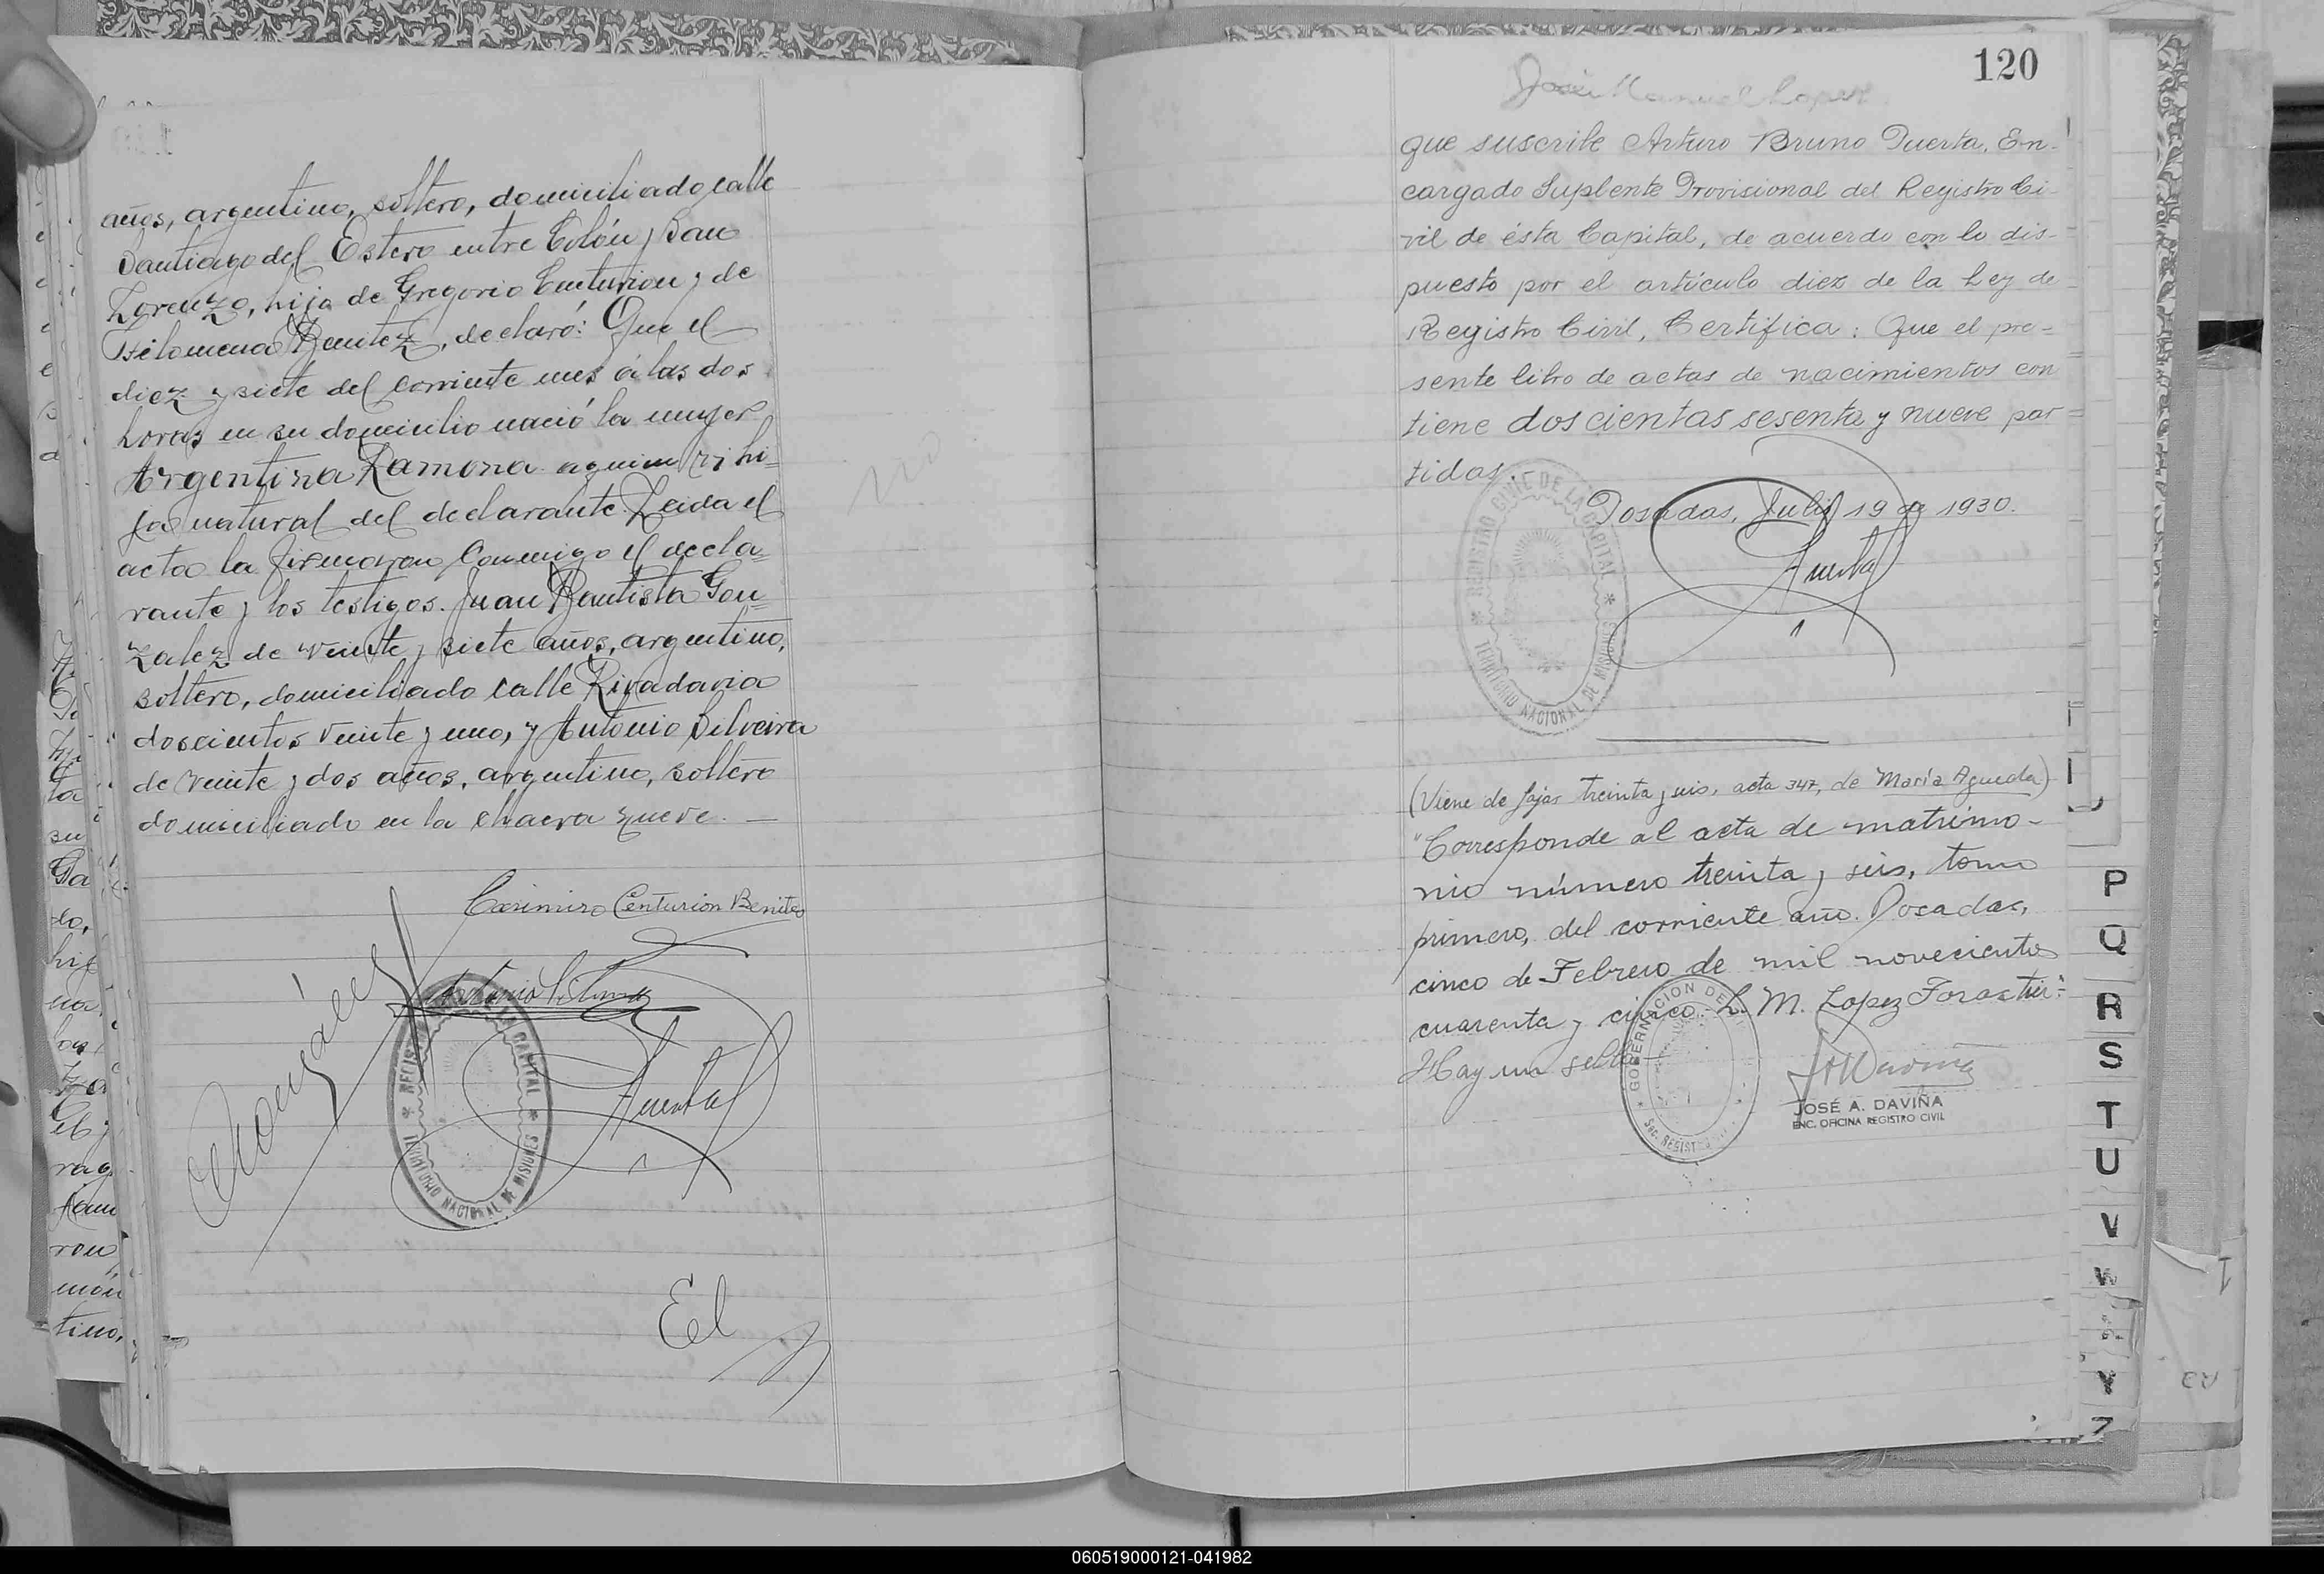 años, argentino, soltero, domiciliado calle
Santiago del Estero entre Colón y San
Lorenzo, hijo de Gregorio Centurion y de
Filomena Benitez, declaró: Que el
diez y siete del corriente mes á las dos
horas en su domicilio nació la mujer
Argentina Ramona aquien vi hi=
ja natural del declarante. Leida el
acta la firmaron conmigo el decla=
rante y los testigos. Juan Bautista Gon=
zalez de veinte y siete años, argentino,
soltero, domiciliado calle Rivadavia
doscientos veinte y uno, y Antonio Silveira
de veinte y dos años, argentino, soltero
domiciliado en la chacra nueve. —
Casimiro Centurion Benites
Antonio Silveira
González
Puerta
REGISTRO CIVIL DE LA CAPITAL
TERRITORIO NACIONAL DE MISIONES
El
120
José Manuel Lopez
que suscribe Arturo Bruno Puerta, En-
cargado Suplente Provisional del Registro Ci-
vil de ésta Capital, de acuerdo con lo dis-
puesto por el artículo diez de la Ley de
Registro Civil, Certifica: Que el pre-
sente libro de actas de nacimientos con
tiene doscientas sesenta y nueve par=
tidas.
Posadas, Julio 19 de 1930.
Puerta
REGISTRO CIVIL DE LA CAPITAL
TERRITORIO NACIONAL DE MISIONES
(Viene de fojas treinta y seis, acta 347, de María Agueda)
"Corresponde al acta de matrimo-
nio número treinta y seis, tomo
primero, del corriente año. Posadas,
cinco de Febrero de mil novecientos
cuarenta y cinco. L. M. Lopez Forastier:
Hay un sello
GOBERNACION DE
Sec. REGISTRO
JOSÉ A. DAVIÑA
ENC. OFICINA REGISTRO CIVIL
P
Q
R
S
T
U
V
W
Y
Z
060519000121-041982